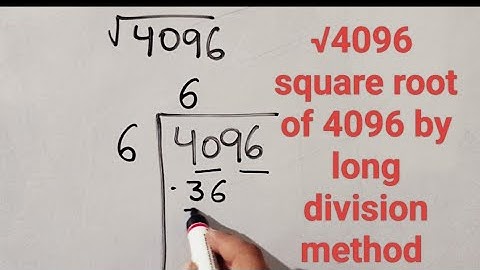 √4096
6
6 4096
36
√4096
square root
of 4096 by
long
division
method